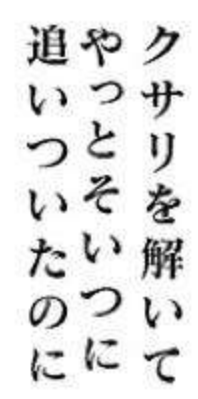 クサリを解いて
やっとそいつに
追いついたのに